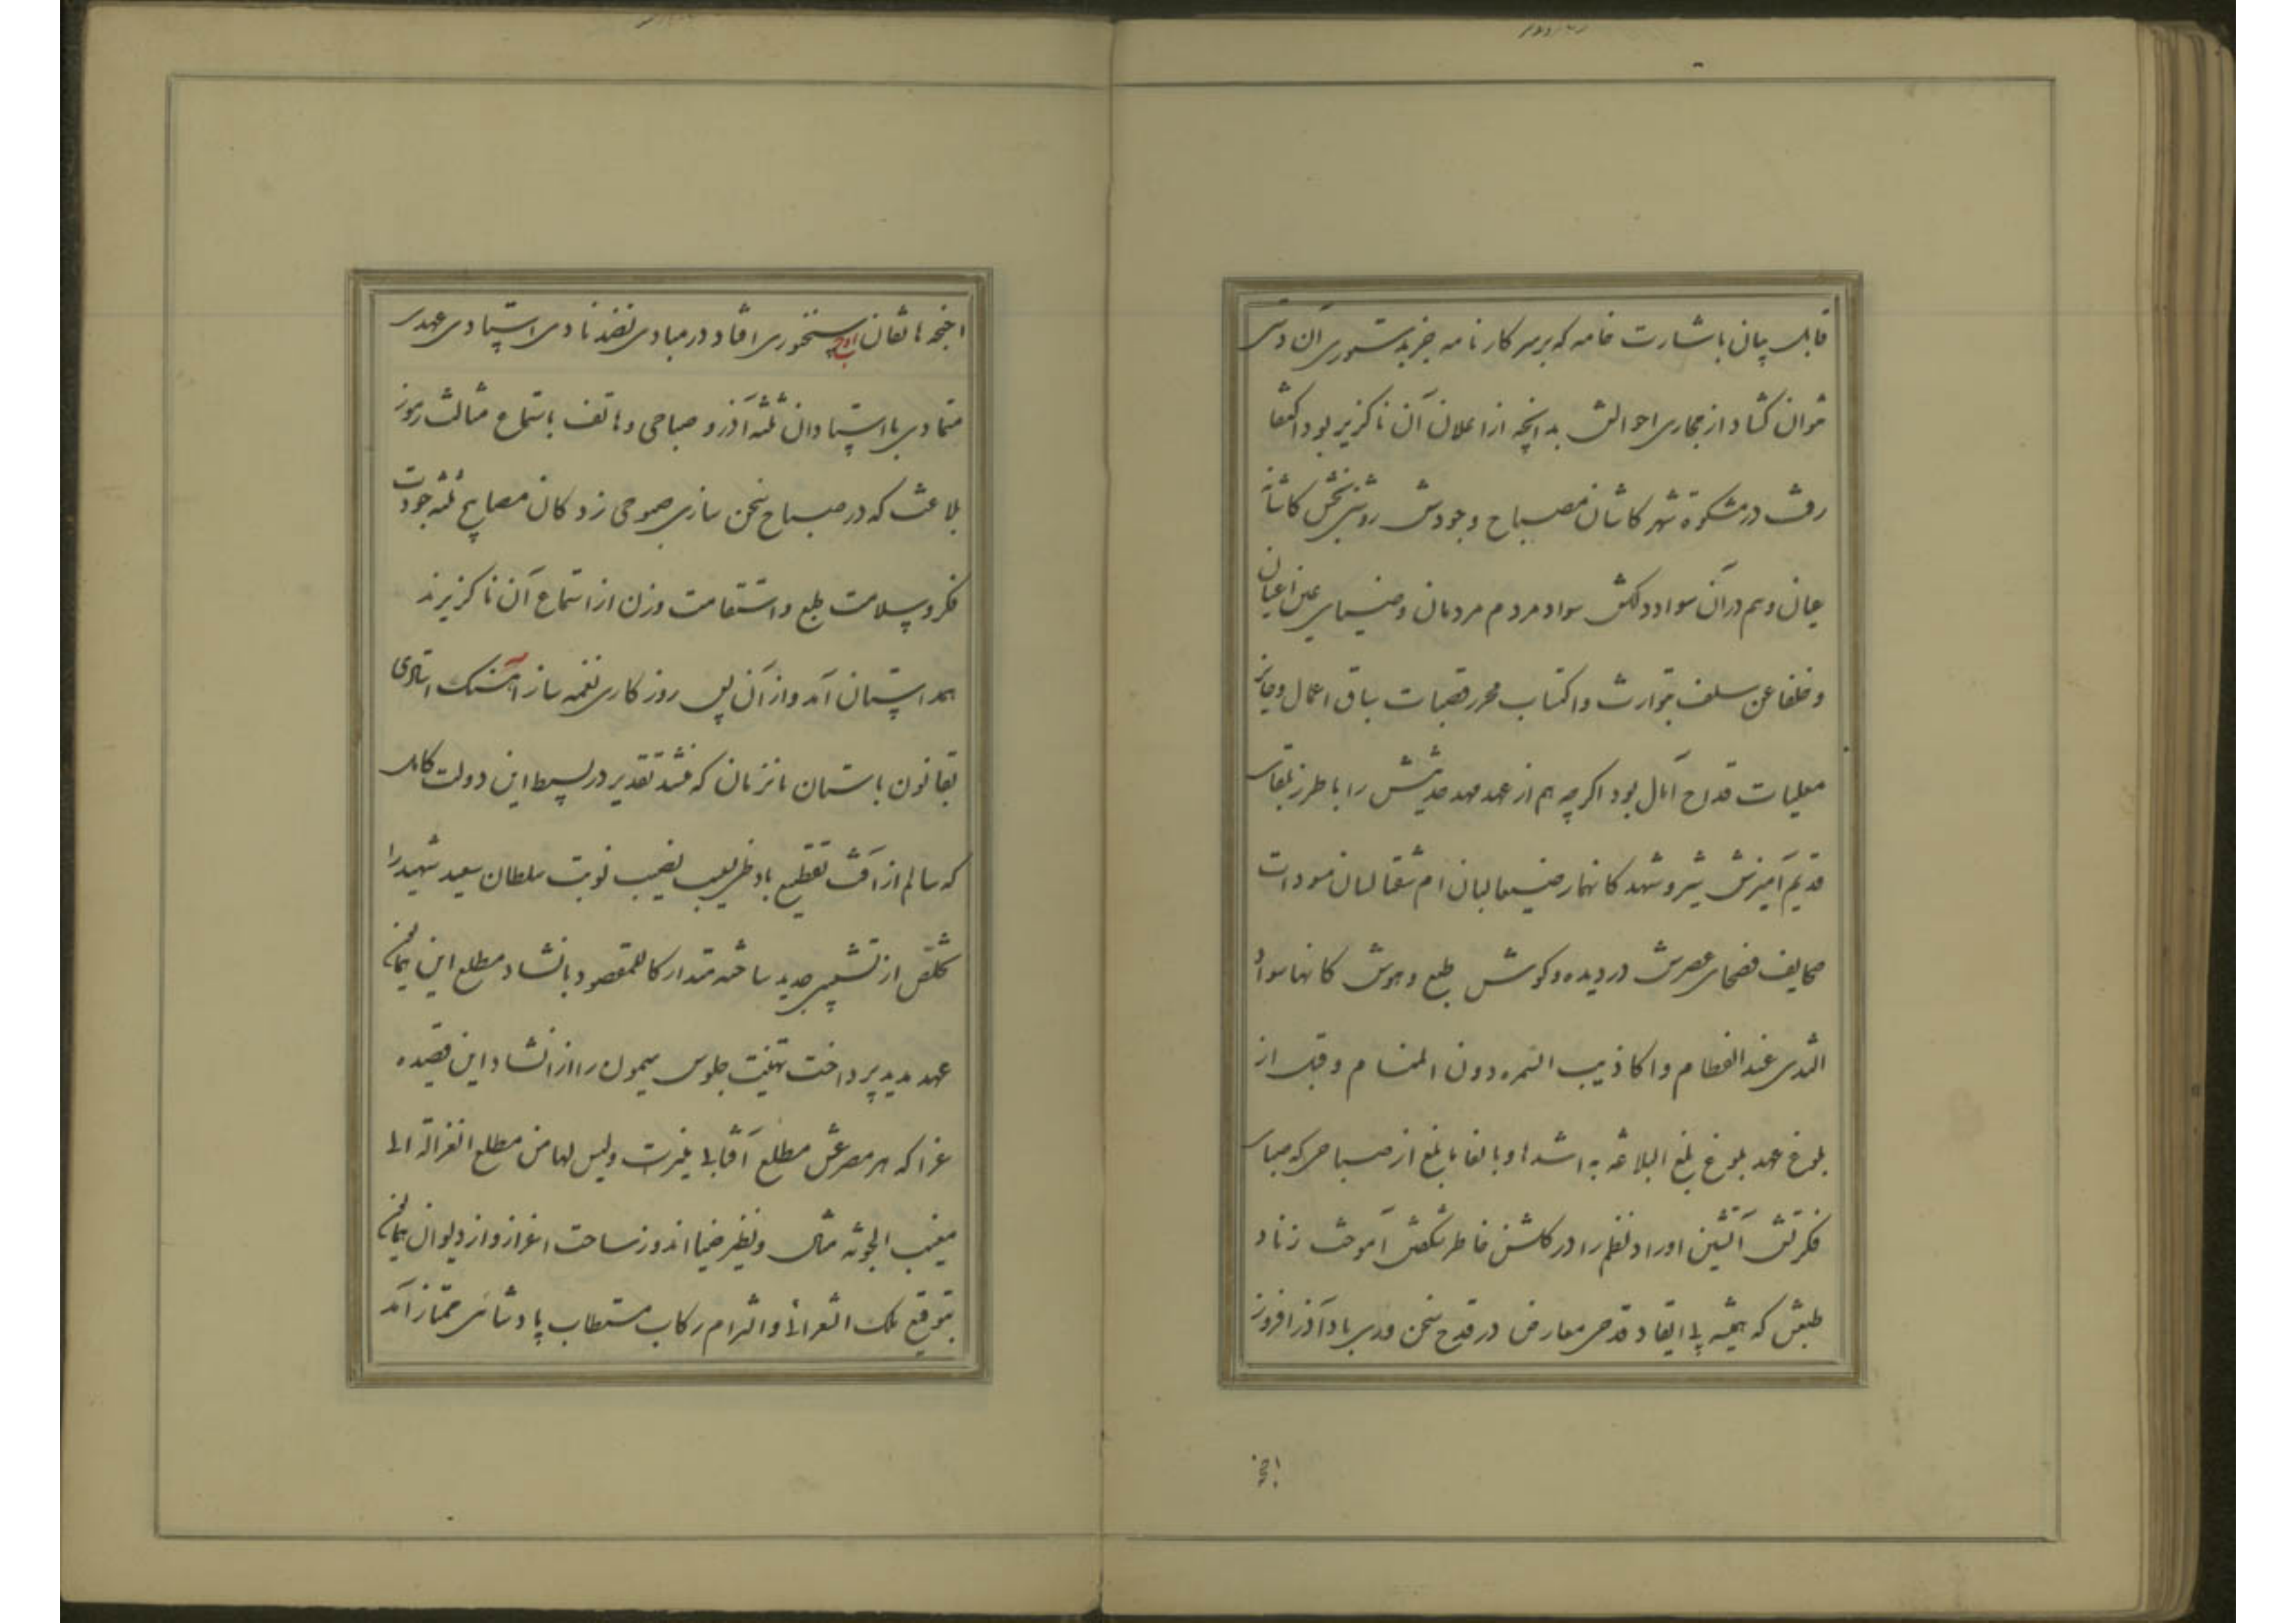 قابل بیان باشارت خامه که بر سر کارنامه جز بدستوری آن دستی
نتوان گشاد از مجاری احوالش بدانچه از اعلان آن ناگزیر بود اکتفا
رفت در مشکوة شهر کاشان مصباح وجودش روشنی بخش کاشانه
عیان و هم در آن سواد دلکش سواد مردم مردمان و ضیای عین اعیان
و خلفا عن سلف بتوارث و اکتساب محرر قصبات سباق اعمال و حایز
معلیات قداح آمال بود اگر چه هم از عهد مهد حدیثش را با طرز بلغای
قدیم آمیزش شیر و شهد کانهما رضیعا لبان ام ثقا لبان مسودات
صحایف فصحای عصرش در دیده و گوش طبع و هوش کانها سواد
الثدی عند الفطام و اکاذیب السمر دون المنام و قبل از
بلوغ عهد بلوغ بلغ البلاغه به اشدها و بالغا ما بلغ از صباحی که صبای
فکرتش آتشین اوراد نظم را در گلشن خاطر شگفتن آموخت زناد
طبعش که همیشه پی ایقاد قدحی معارض در قدح سخن وری باد آذر افروز
اجنحه
اجنحه هاتفان اوج سخنوری افتاد در مبادی نضد نادی استادی عهدی
متمادی با استادان ثلثه آذر و صباحی و هاتف باستماع مثالث رموز
بلاغت که در صباح سخن سازی صبوحی زدگان مصابیح ثلثه جودت
فکر و سلامت طبع و استقامت وزن از استماع آن ناگزیرند
همداستان آمد و از آن پس روزگاری نغمه ساز آهنگ استادی
بقانون باستان تا نزمان که منشد تقدیر در بسیط این دولت کامل
که سالم از آفت تقطیع باد ظریعیب نصیب نوبت سلطان سعید شهید را
تخلص از تشبیبی جدید ساخته متدارکا للمقصود بانشاد مطلع این همایون
عهد مدید پرداخت تهنیت جلوس میمون را از انشاد این قصیده
غرا که هر مصرعش مطلع آفتابی بلیغ است و لیس لها من مطلع الغزالة الی
مغیب الجونه مثال و نظیر ضیا اندوز ساحت اعزاز و از دیوان همایون
بتوقیع ملک الشعرائی و التزام رکاب مستطاب پادشاهی ممتاز آمد